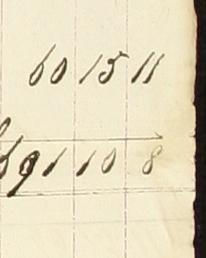 60 15 11
691 10 8